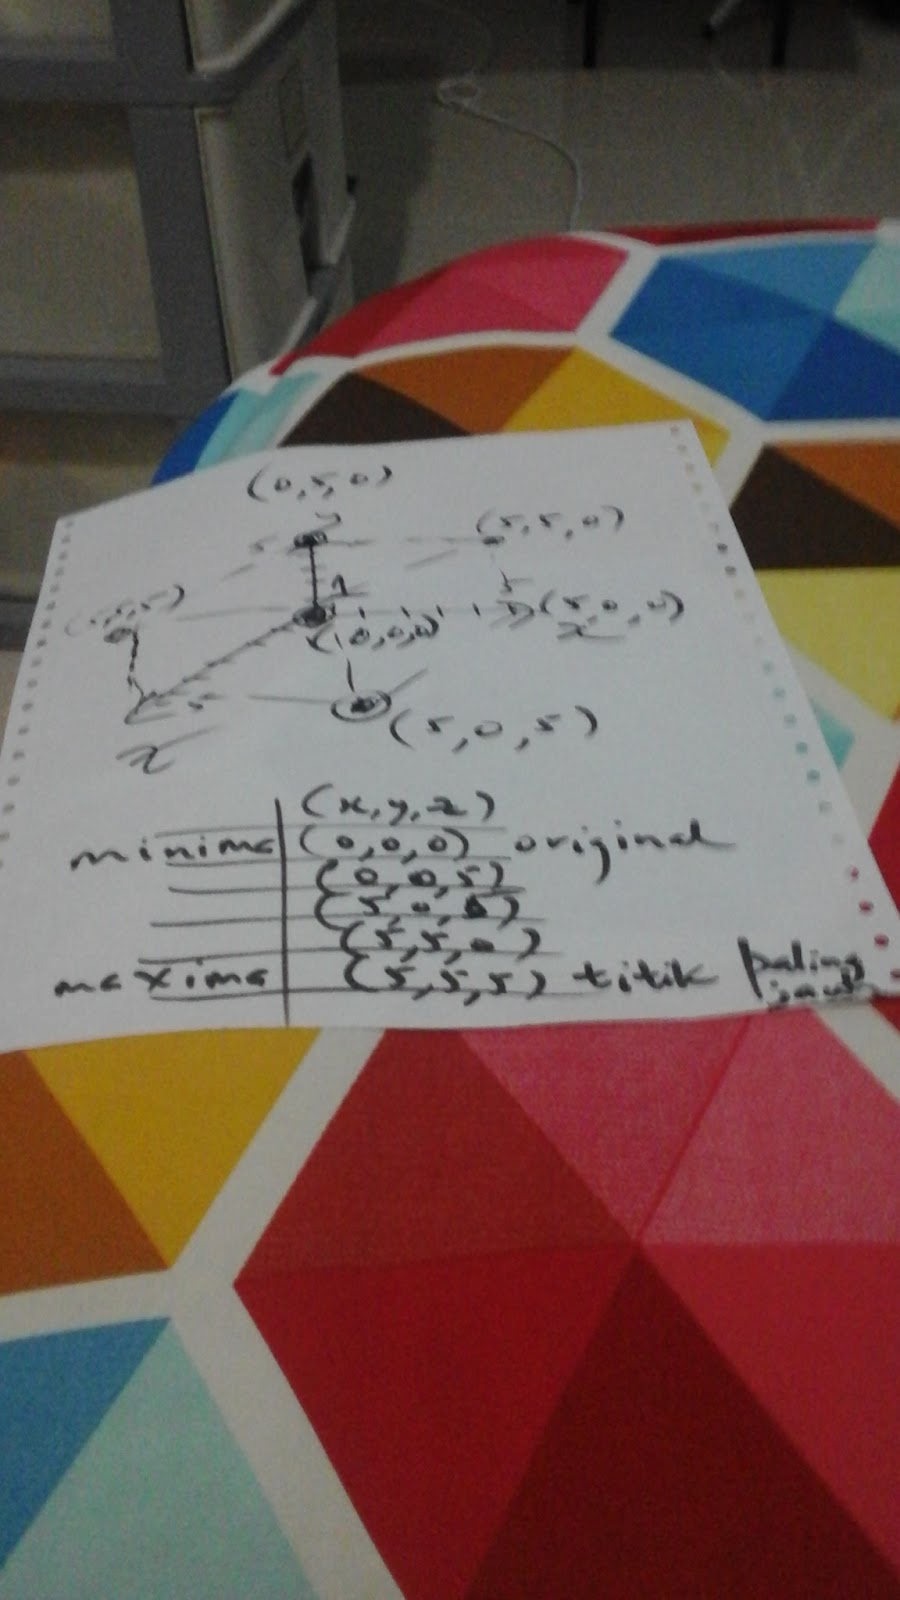 (0,5,0)
y
5
(5,5,0)
5
(5,0,0)
x
(0,0,0)
5
z
(5,0,5)
(x,y,z)
minima (0,0,0) original
(0,0,5)
(5,0,5)
(5,5,0)
maxima (5,5,5) titik paling
jauh